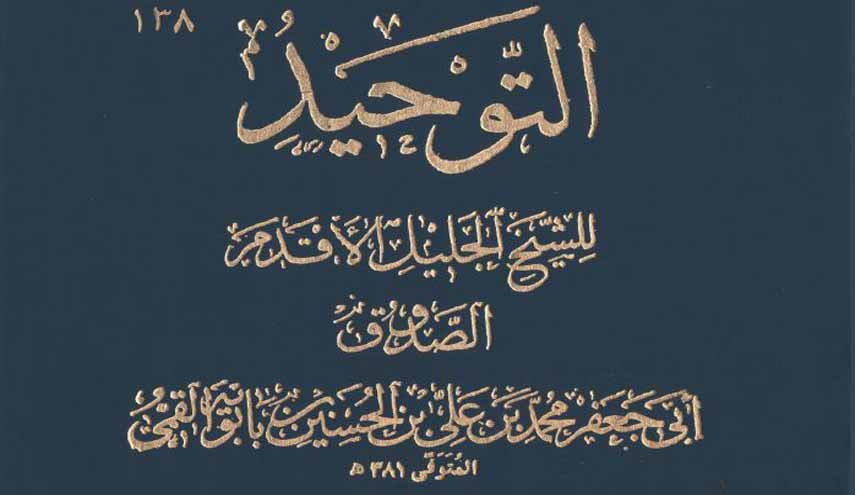 ١٣٨
التَّوْحِيدُ
لِلشَّيْخِ الْجَلِيلِ الْأَقْدَمِ
الصَّدُوقِ
أَبِي جَعْفَرٍ مُحَمَّدِ بْنِ عَلِيِّ بْنِ الْحُسَيْنِ بْنِ بَابَوَيْهِ الْقُمِّيِّ
المُتَوَفَّى ٣٨١ ه